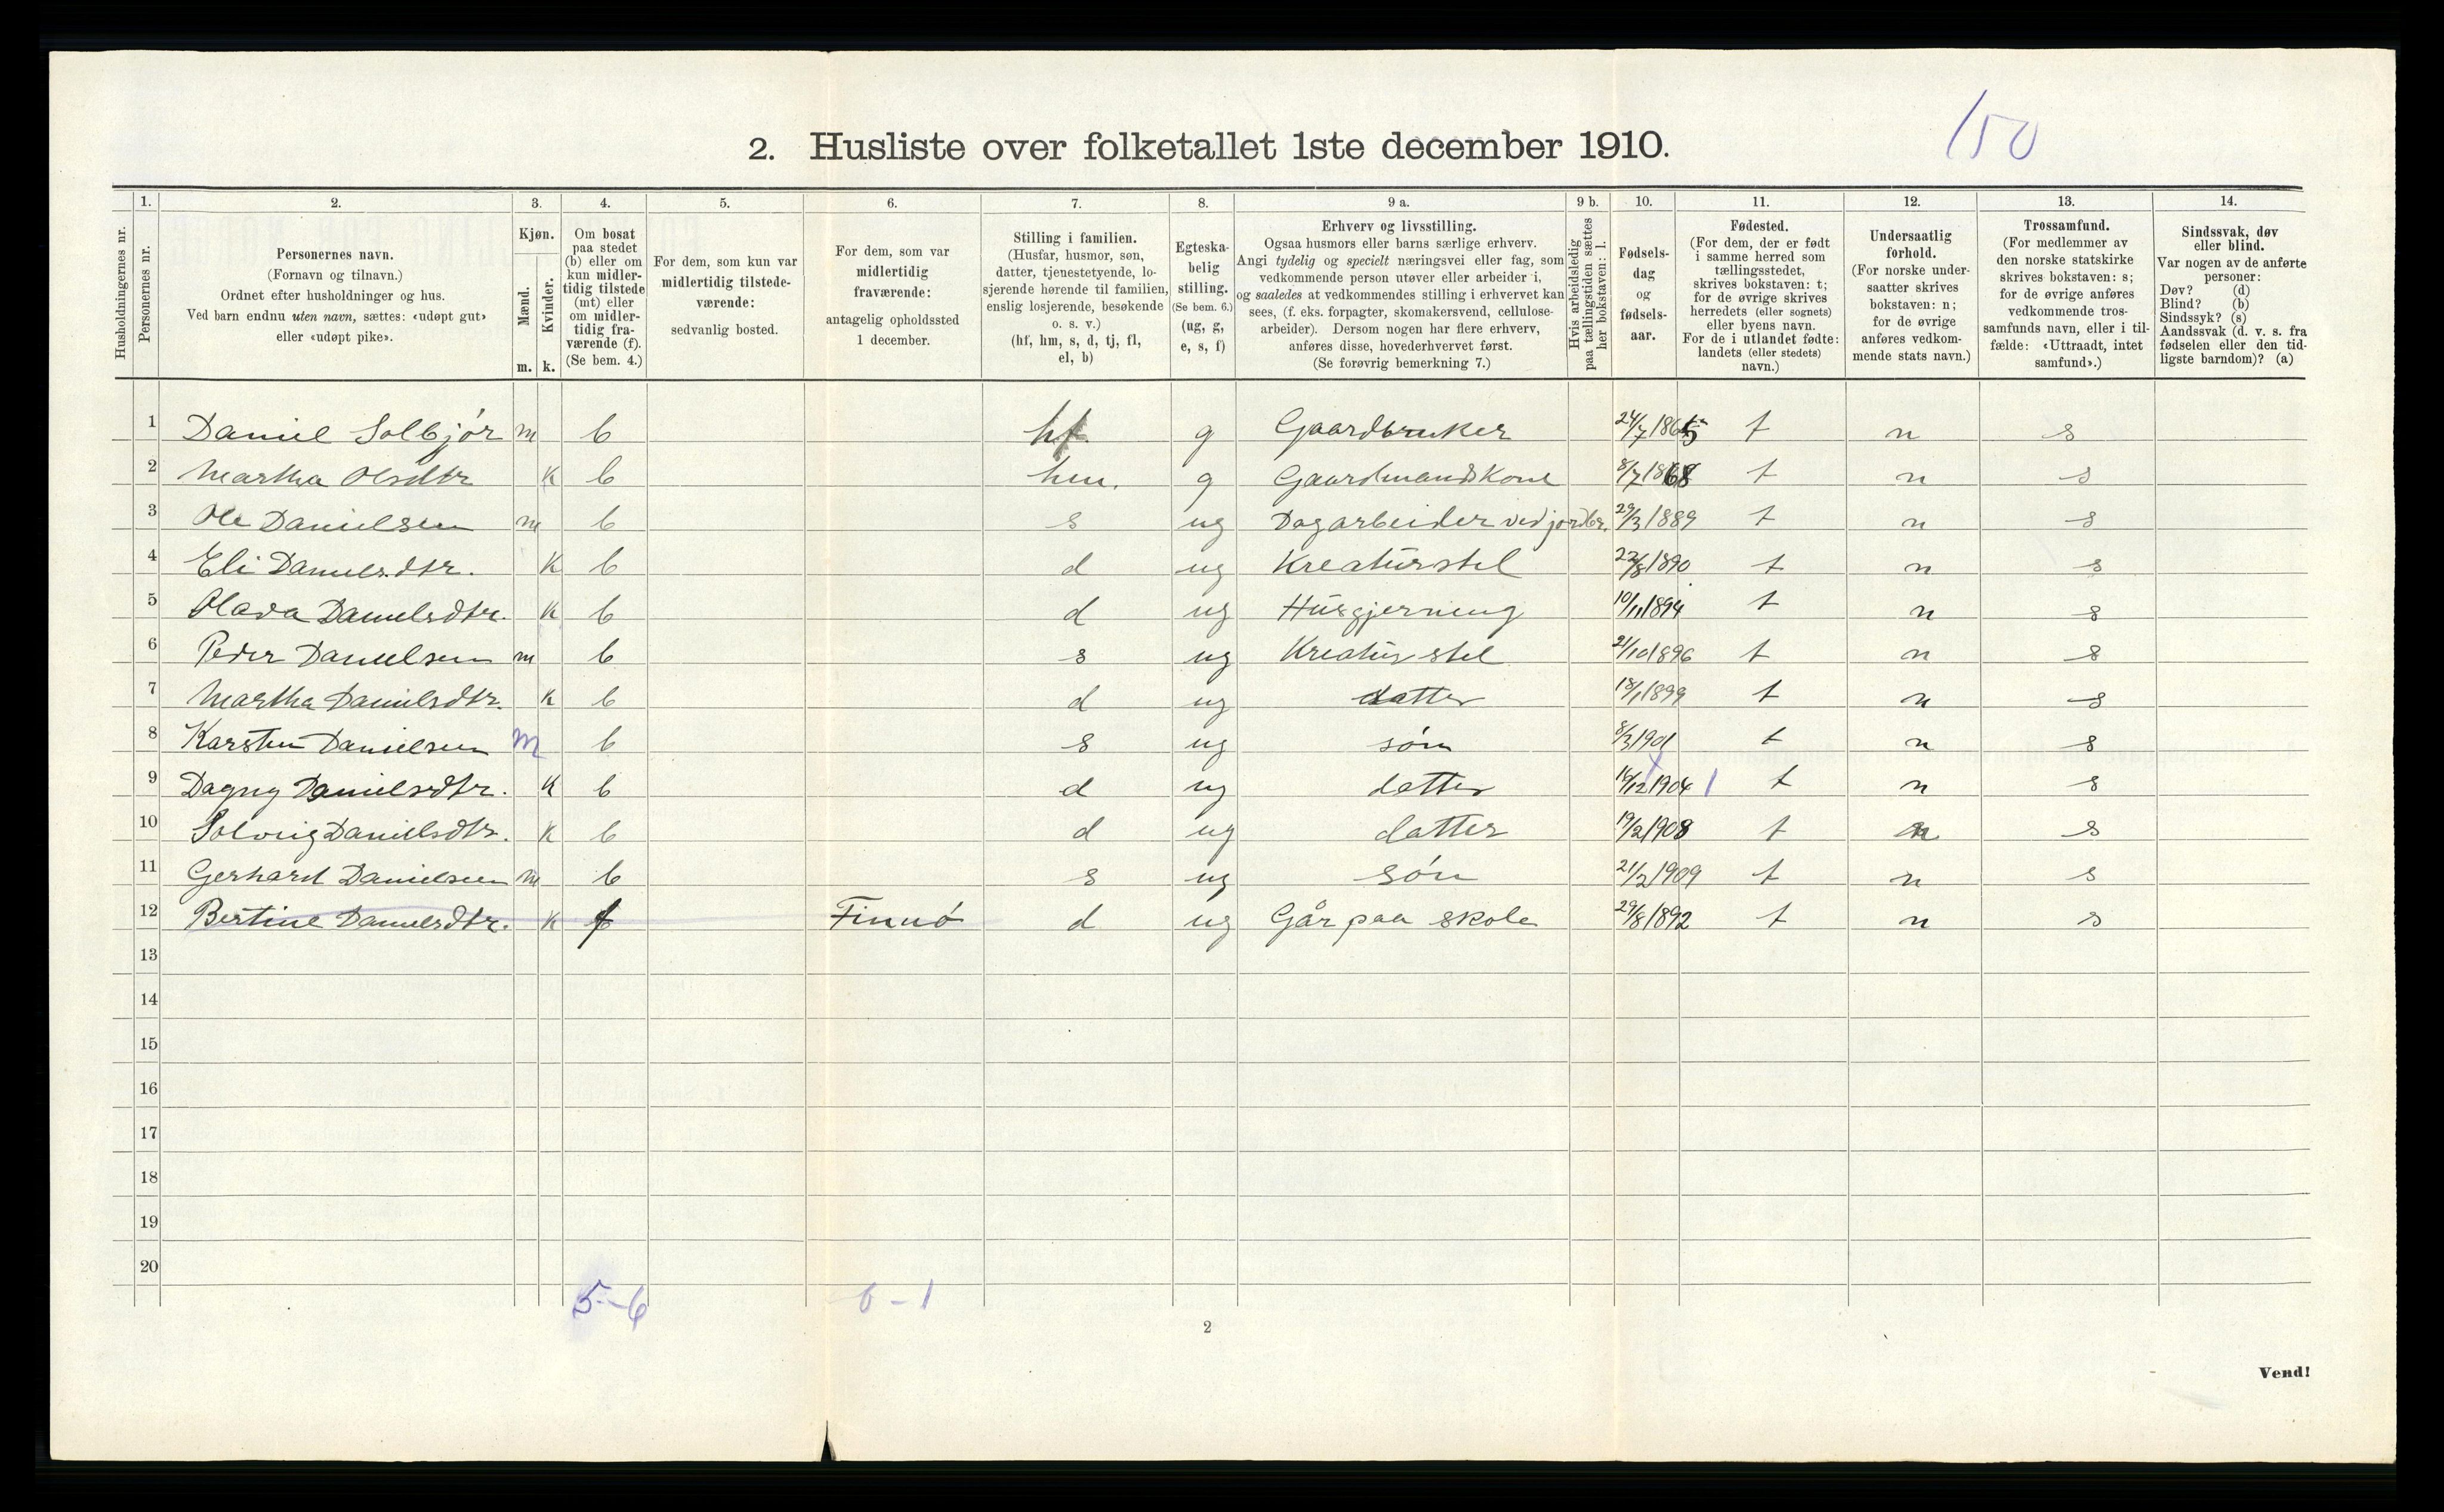 150
2. Husliste over folketallet 1ste december 1910.
Husholdningernes nr.
1. Personernes nr.
2. Personernes navn. (Fornavn og tilnavn.) Ordnet efter husholdninger og hus. Ved barn endnu uten navn, sættes: «udøpt gut» eller «udøpt pike».
3. Kjøn. Mænd. m. Kvinder. k.
4. Om bosat paa stedet (b) eller om kun midlertidig tilstede (mt) eller om midlertidig fraværende (f). (Se bem. 4.)
5. For dem, som kun var midlertidig tilstedeværende: sedvanlig bosted.
6. For dem, som var midlertidig fraværende: antagelig opholdssted 1 december.
7. Stilling i familien. (Husfar, husmor, søn, datter, tjenestetyende, losjerende hørende til familien, enslig losjerende, besøkende o. s. v.) (hf, hm, s, d, tj, fl, el, b)
8. Egteskabelig stilling. (Se bem. 6.) (ug, g, e, s, f)
9 a. Erhverv og livsstilling. Ogsaa husmors eller barns særlige erhverv. Angi tydelig og specielt næringsvei eller fag, som vedkommende person utøver eller arbeider i, og saaledes at vedkommendes stilling i erhvervet kan sees, (f. eks. forpagter, skomakersvend, cellulosearbeider). Dersom nogen har flere erhverv, anføres disse, hovederhvervet først. (Se forøvrig bemerkning 7.)
9 b. Hvis arbeidsledig paa tællingstiden sættes her bokstaven: l.
10. Fødselsdag og fødselsaar.
11. Fødested. (For dem, der er født i samme herred som tællingsstedet, skrives bokstaven: t; for de øvrige skrives herredets (eller sognets) eller byens navn. For de i utlandet fødte: landets (eller stedets) navn.)
12. Undersaatlig forhold. (For norske undersaatter skrives bokstaven: n; for de øvrige anføres vedkommende stats navn.)
13. Trossamfund. (For medlemmer av den norske statskirke skrives bokstaven: s; for de øvrige anføres vedkommende trossamfunds navn, eller i tilfælde: «Uttraadt, intet samfund».)
14. Sindssvak, døv eller blind. Var nogen av de anførte personer: Døv? (d) Blind? (b) Sindssyk? (s) Aandssvak (d. v. s. fra fødselen eller den tidligste barndom)? (a)
1 Daniel Solbjør m b hf. g Gaardbruker 24/7 1865 t n s
2 Martha Olsdtr k b hm. g Gaardmandskone 8/7 1868 t n s
3 Ole Danielsen m b s ug Dagarbeider ved jordbr. 29/3 1889 t n s
4 Eli Danielsdtr. k b d ug Kreaturstel 1890 t n s
5 Olava Danielsdtr. k b d ug Husgjerning 10/11 1894 t n s
6 Peder Danielsen m b s ug Kreaturstel 21/10 1896 t n s
7 Martha Danielsdtr. k b d ug datter 18/1 1899 t n s
8 Karsten Danielsen m b s ug søn 8/3 1901 t n s
9 Dagny Danielsdtr. k b d ug datter 16/12 1904 1 t n s
10 Solveig Danielsdtr. k b d ug datter 19/2 1908 t n s
11 Gerhard Danielsen m b s ug søn 21/2 1909 t n s
12 Bertine Danielsdtr. k f Finnø d ug Går paa skole 29/8 1892 t n s
13
14
15
16
17
18
19
20
5-6 0-1
2
Vend!